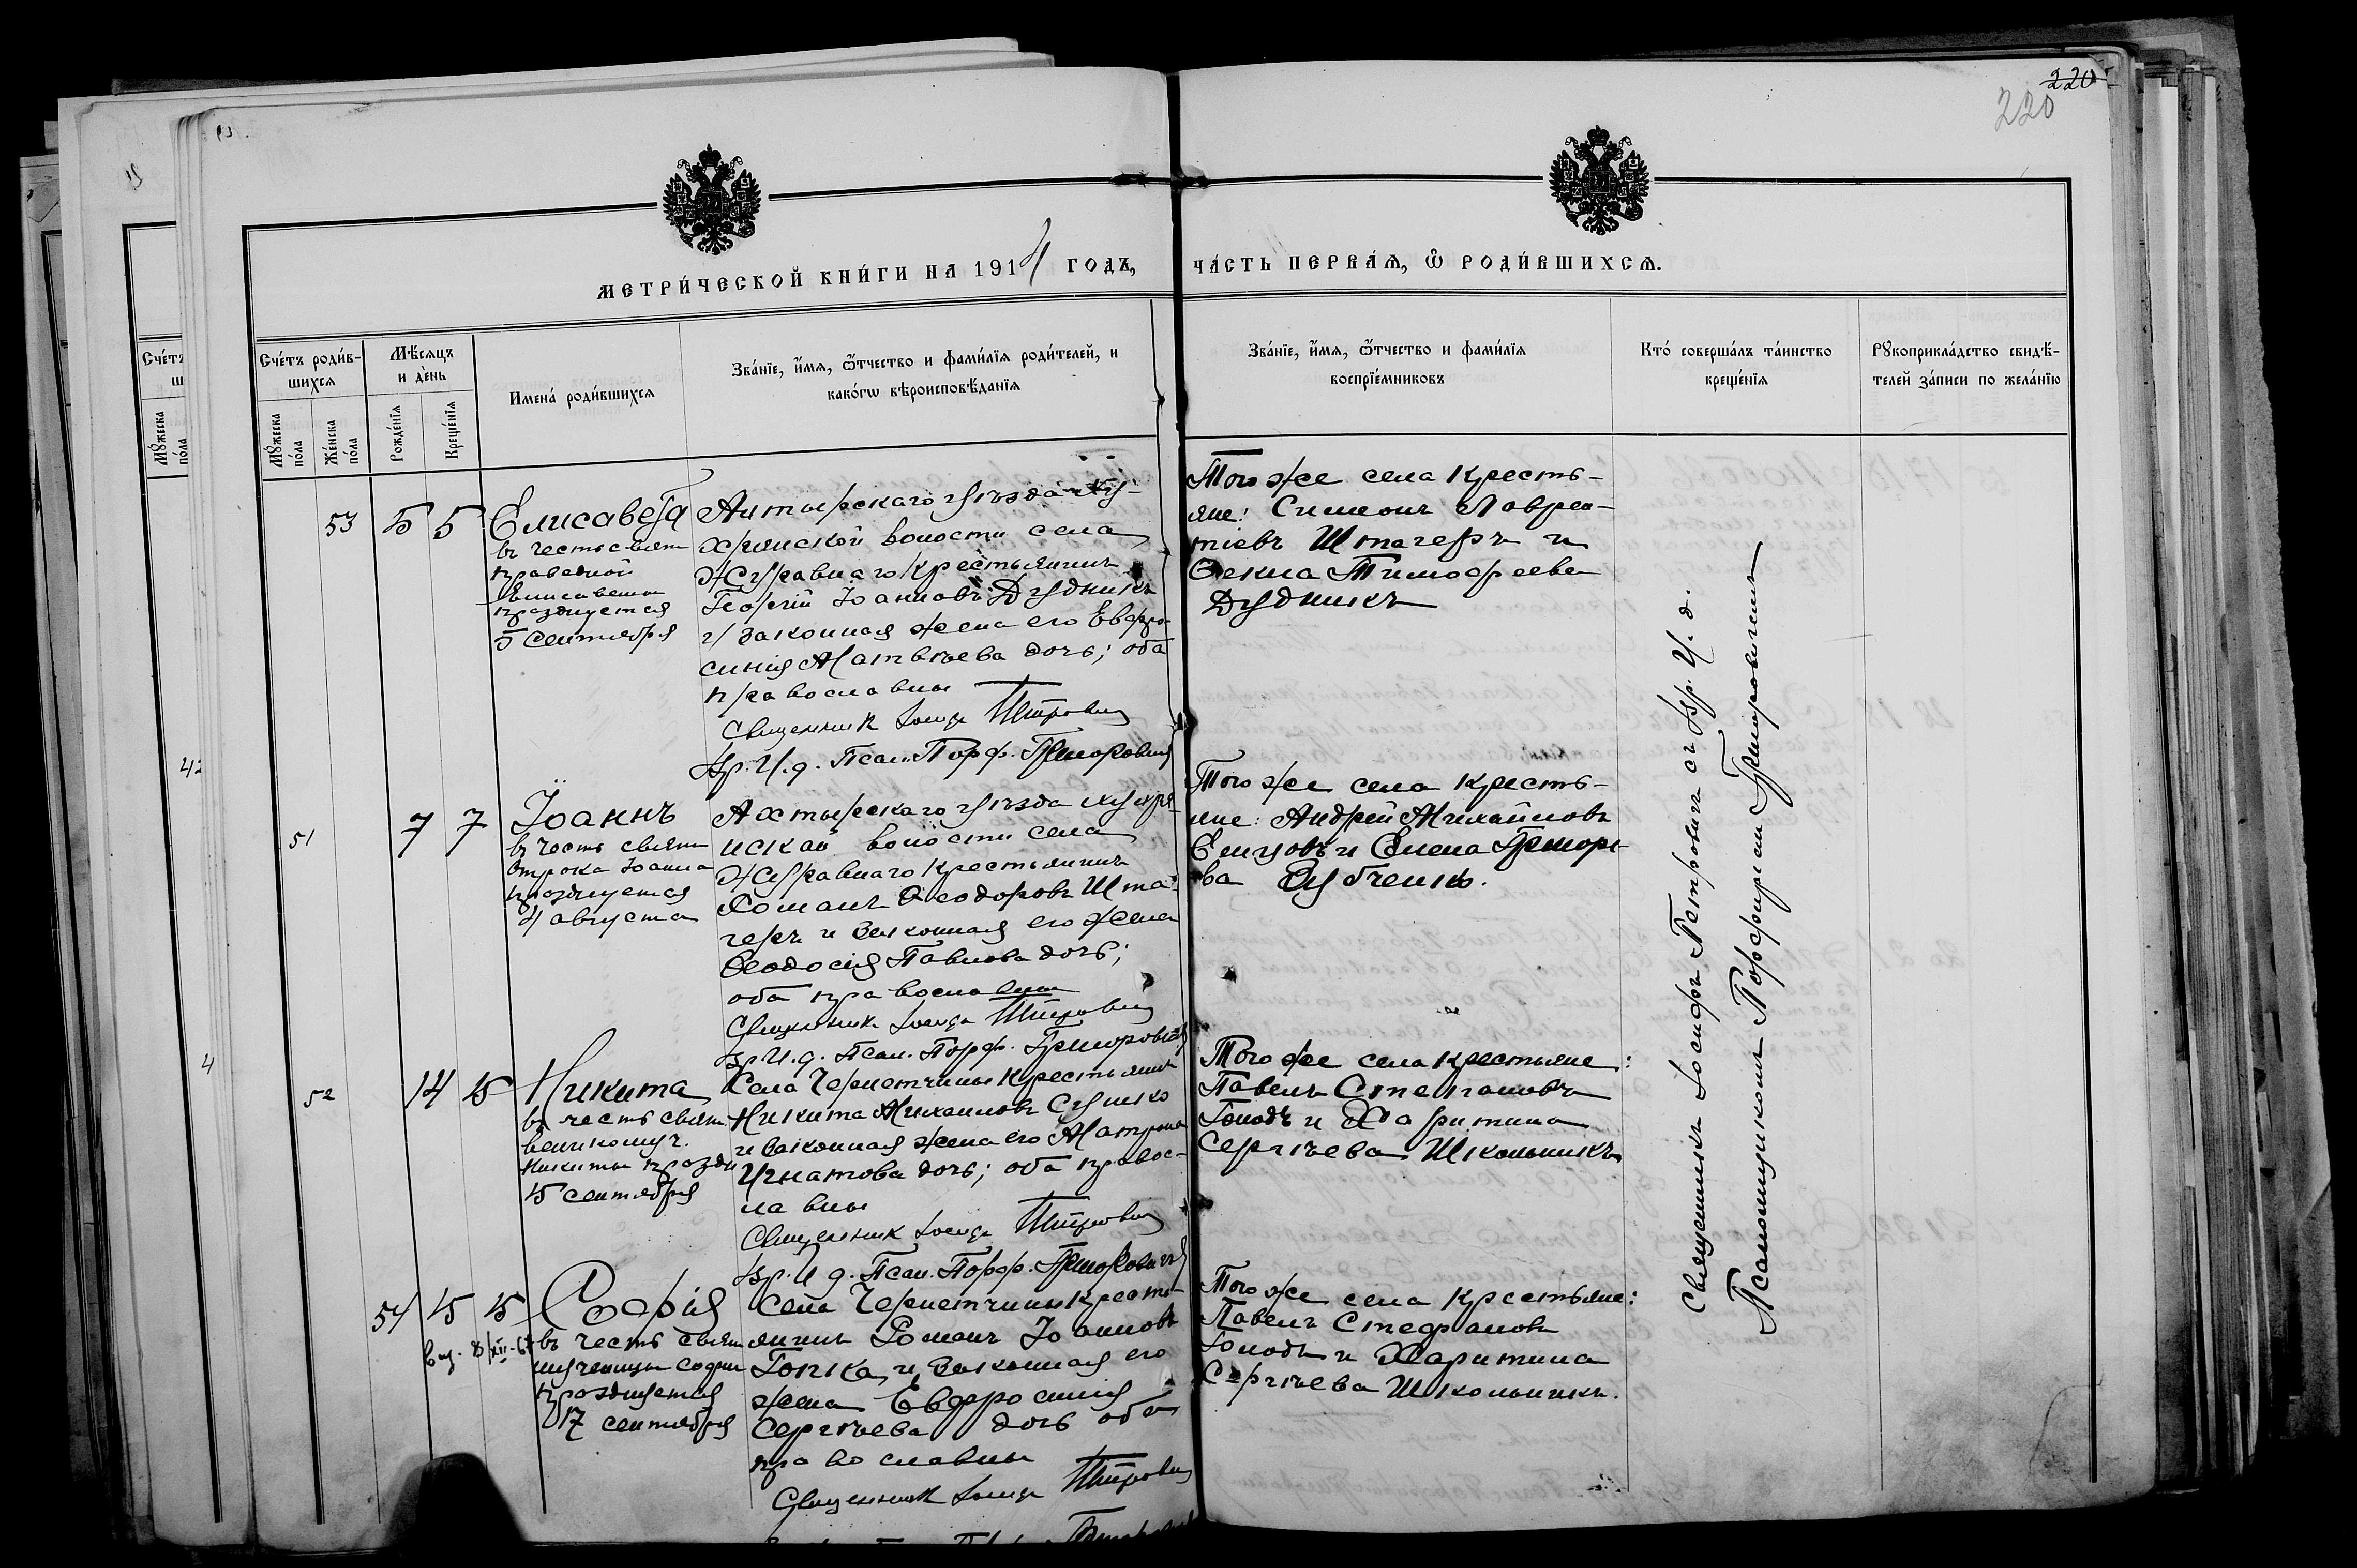 220
220
МЕТРИ́ЧЕСКОЙ КНИ́ГИ НА 1914 ГОДЪ,
ЧА́СТЬ ПЕРВА́Я, Ѡ РОДИ́ВШИХСЯ.
Сче́тъ роди́в-
шихся
Мꙋ́жеска
по́ла
Же́нска
по́ла
Мѣ́сяцъ
и де́нь
Рожде́нїя
Креще́нїя
Имена́ роди́вшихся
Зва́нїе, и́мя, ѻ҆́тчество и фами́лїя роди́телей, и
како́гѡ вѣроисповѣ́данїя
Зва́нїе, и́мя, ѻ҆́тчество и фами́лїя
воспрїе́мниковъ
Кто́ соверша́лъ та́инство
креще́нїя
Рꙋкоприкла́дство свидѣ́-
телей за́писи по жела́нїю
53 5 5
Елисавета
въ честь свят
праведной
Елисаветы
празднуется
5 сентября
Ахтырскаго уѣзда Ху-
хрянской волости села
Журавнаго крестьянинъ
Георгій Іоанновъ Дудникъ
и законная жена его Евфро-
синія Матвѣева дочь; оба
православны
Священникъ Іосифъ Петровичъ
Вр. И. д. Псал. Порф. Григоровичъ
Того же села кресть-
яне: Симеонъ Лаврен-
тіевъ Штагеръ и
Ѳекла Тимофеева
Дудникъ
51 7 7
Іоаннъ
въ честь свят
отрока Іоанна
празднуется
4 августа
Ахтырскаго уѣзда Хухря-
нской волости села
Журавнаго крестьянинъ
Романъ Ѳеодоровъ Шта-
геръ и законная его жена
Ѳеодосія Павлова дочь;
оба православны
Священникъ Іосифъ Петровичъ
Вр. И. д. Псал. Порф. Григоровичъ
Того же села кресть-
яне: Андрей Михайловъ
и Елена Григорь-
ева Зубченко.
52 14 15
Никита
въ честь свят.
великомуч.
Никиты праздн
15 сентября
Села Чернетчины крестьянинъ
Никита Михаиловъ Сушко
и законная жена его Матрона
Игнатова дочь; оба правос-
лавны
Священникъ Іосифъ Петровичъ
Вр. И. д. Псал. Порф. Григоровичъ
Того же села крестьяне:
Павелъ Стефановъ
Голодъ и Харитина
Сергѣева Школьникъ
54 15 15
Софія
въ честь свят
мученицы Софіи
празднуется
17 сентября
Села Чернетчины кресть-
янинъ Романъ Іоанновъ
Гопка, и законная его
жена Евфросинія
Сергѣева дочь оба
православны
Священникъ Іосифъ Петровичъ
Того же села крестьяне:
Павелъ Стефановъ
Голодъ и Харитина
Сергѣева Школьникъ.
Священникъ Іосифъ Петровичъ съ Вр. И. д.
Псаломщикомъ Порфиріемъ Григоровичемъ